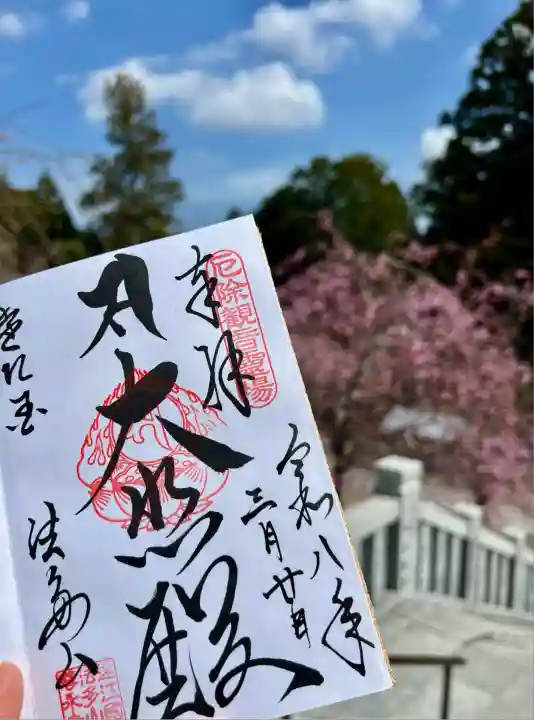 厄除観音霊場
奉拝
令和八年
三月廿日
大悲殿
遠江国
法多山